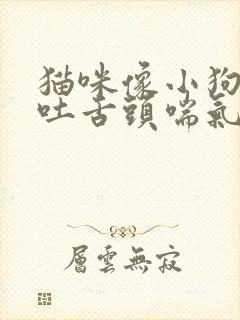 猫咪像小狗
吐舌頭喘氣
層雲無寂